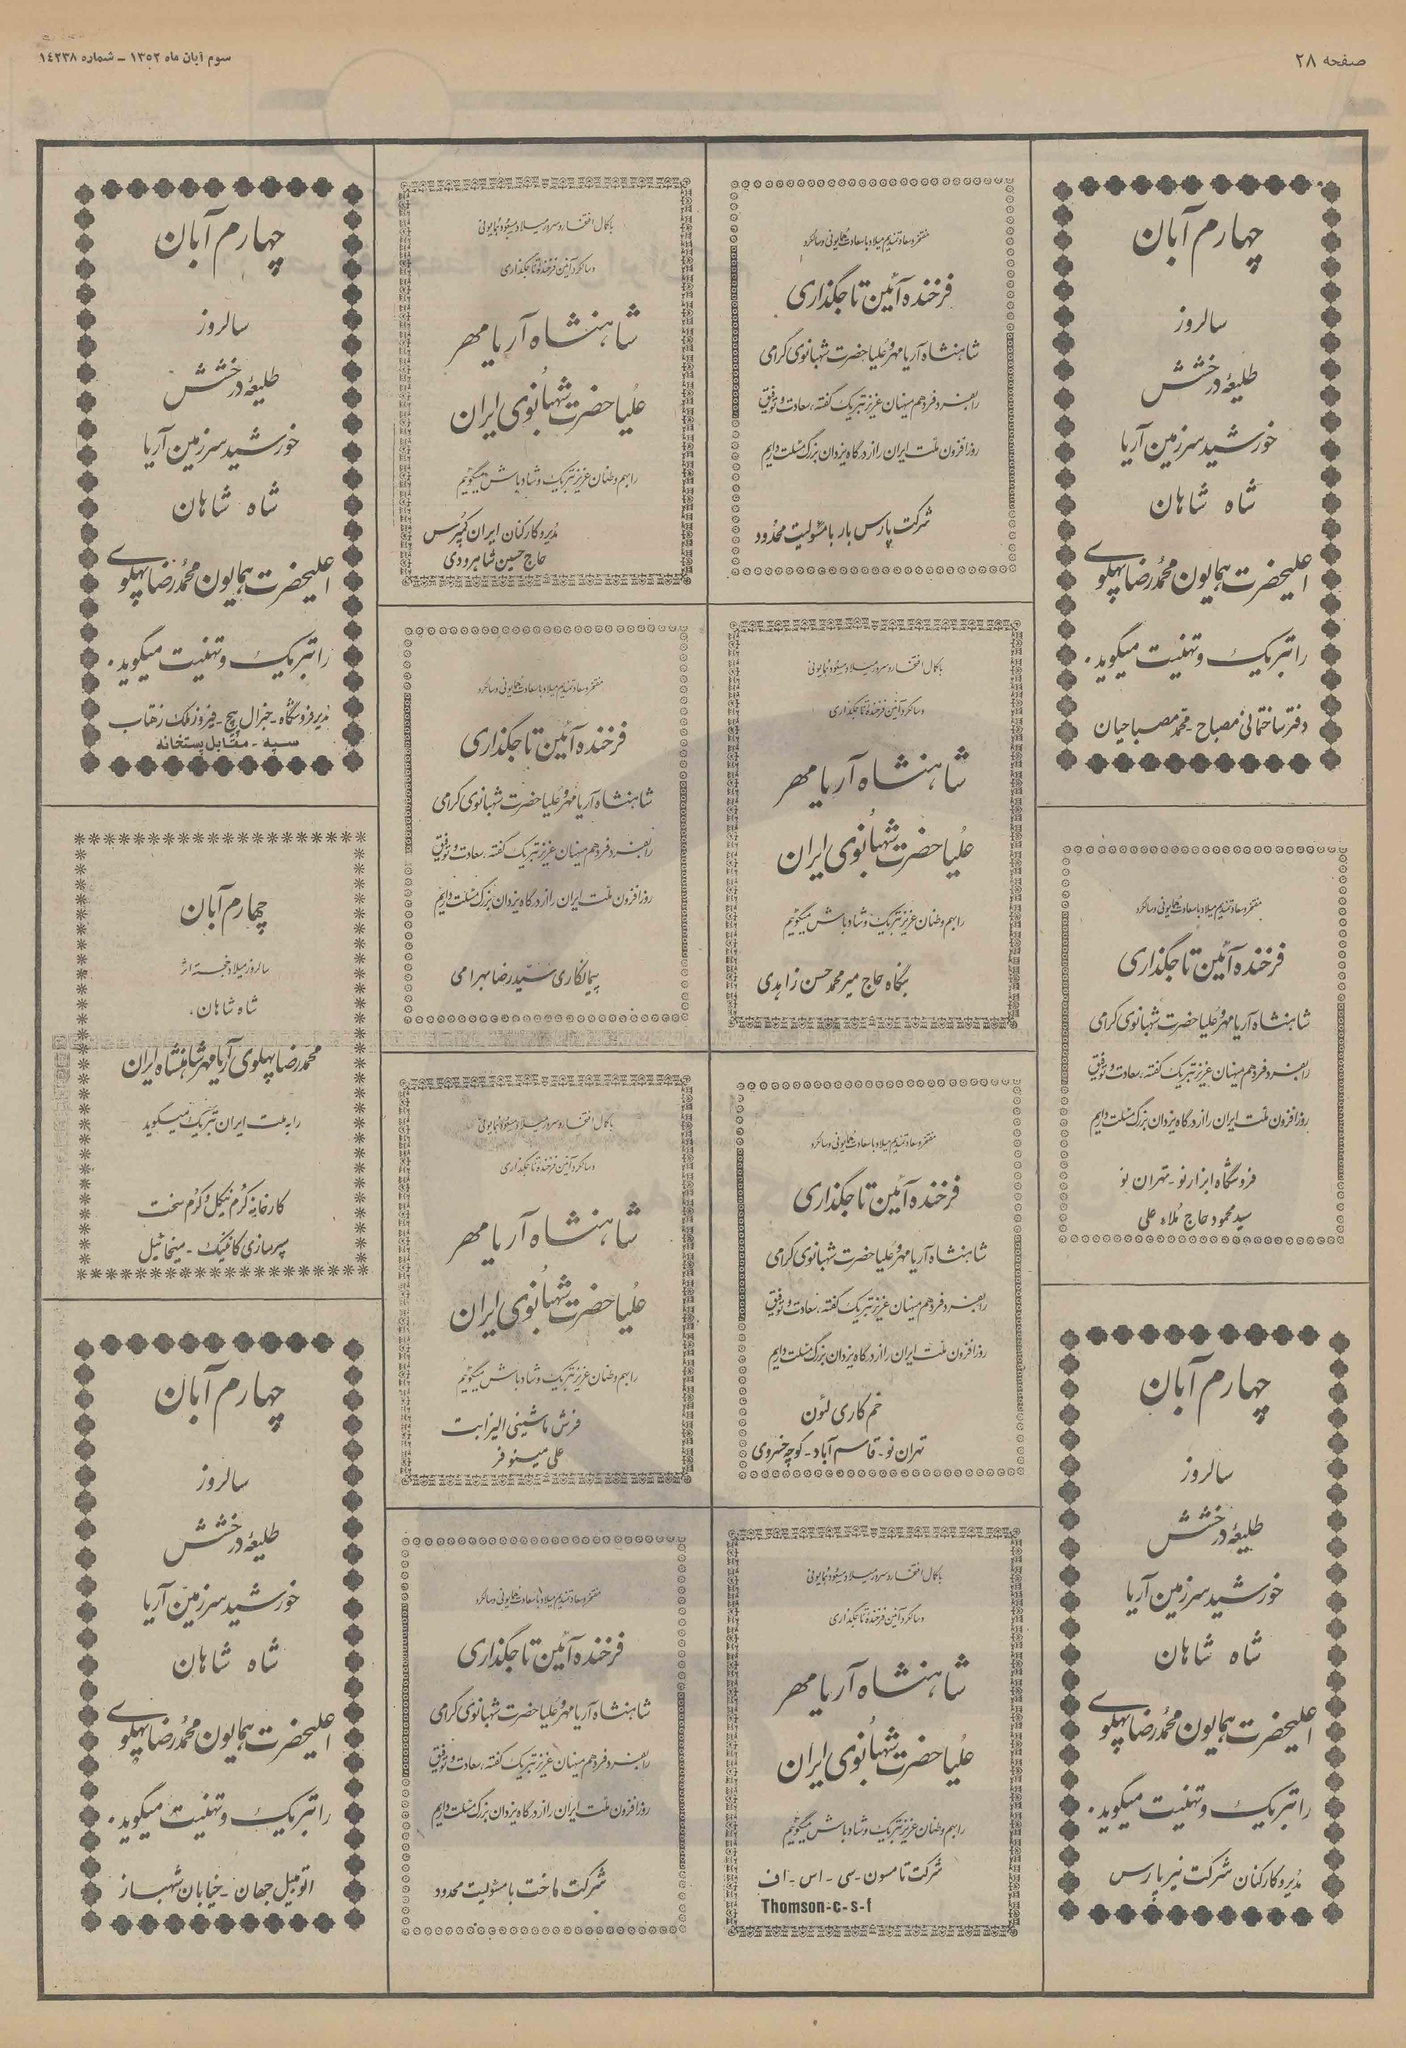 صفحه ۲۸
سوم آبان ماه ۱۳۵۲ - شماره ۱۴۲۳۸
چهارم آبان
سالروز
طلیعهٔ درخشش
خورشید سرزمین آریا
شاه شاهان
اعلیحضرت همایون محمدرضا پهلوی
را تبریک و تهنیت میگوید.
دفتر ساختمانی مصباح - محمد مصباحیان
مفتخر و سعادتمندیم میلاد با سعادت همایونی و سالگرد
فرخنده آئین تاجگذاری
شاهنشاه آریامهر و علیاحضرت شهبانوی گرامی
را بفرد فرد هم میهنان عزیز تبریک گفته، سعادت و توفیق
روزافزون ملت ایران را از درگاه یزدان بزرگ مسئلت داریم
فروشگاه ابزار نو - تهران نو
سید محمود حاج ملاء علی
چهارم آبان
سالروز
طلیعهٔ درخشش
خورشید سرزمین آریا
شاه شاهان
اعلیحضرت همایون محمدرضا پهلوی
را تبریک و تهنیت میگوید.
مدیر و کارکنان شرکت نیرپارس
مفتخر و سعادتمندیم میلاد با سعادت همایونی و سالگرد
فرخنده آئین تاجگذاری
شاهنشاه آریامهر و علیاحضرت شهبانوی گرامی
را بفرد فرد هم میهنان عزیز تبریک گفته، سعادت و توفیق
روزافزون ملت ایران را از درگاه یزدان بزرگ مسئلت داریم
شرکت پارس بار با مسئولیت محدود
با کمال افتخار و سرور میلاد مسعود همایونی
و سالگرد آئین فرخندهٔ تاجگذاری
شاهنشاه آریامهر
علیاحضرت شهبانوی ایران
را بهم وطنان عزیز تبریک و شادباش میگوئیم
بنگاه حاج میر محمد حسن زاهدی
مفتخر و سعادتمندیم میلاد با سعادت همایونی و سالگرد
فرخنده آئین تاجگذاری
شاهنشاه آریامهر و علیاحضرت شهبانوی گرامی
را بفرد فرد هم میهنان عزیز تبریک گفته، سعادت و توفیق
روزافزون ملت ایران را از درگاه یزدان بزرگ مسئلت داریم
خم کاری لئون
تهران نو - قاسم آباد - کوچه خسروی
با کمال افتخار و سرور میلاد مسعود همایونی
و سالگرد آئین فرخندهٔ تاجگذاری
شاهنشاه آریامهر
علیاحضرت شهبانوی ایران
را بهم وطنان عزیز تبریک و شادباش میگوئیم
شرکت تامسون - سی - اس - اف
Thomson-c-s-f
با کمال افتخار و سرور میلاد مسعود همایونی
و سالگرد آئین فرخندهٔ تاجگذاری
شاهنشاه آریامهر
علیاحضرت شهبانوی ایران
را بهم وطنان عزیز تبریک و شادباش میگوئیم
مدیر و کارکنان ایران کمپرس
حاج حسین شاهرودی
مفتخر و سعادتمندیم میلاد با سعادت همایونی و سالگرد
فرخنده آئین تاجگذاری
شاهنشاه آریامهر و علیاحضرت شهبانوی گرامی
را بفرد فرد هم میهنان عزیز تبریک گفته، سعادت و توفیق
روزافزون ملت ایران را از درگاه یزدان بزرگ مسئلت داریم
پیمانکاری سید رضا بهرامی
با کمال افتخار و سرور میلاد مسعود همایونی
و سالگرد آئین فرخندهٔ تاجگذاری
شاهنشاه آریامهر
علیاحضرت شهبانوی ایران
را بهم وطنان عزیز تبریک و شادباش میگوئیم
فرش ماشینی الیزابت
علی مینوفر
مفتخر و سعادتمندیم میلاد با سعادت همایونی و سالگرد
فرخنده آئین تاجگذاری
شاهنشاه آریامهر و علیاحضرت شهبانوی گرامی
را بفرد فرد هم میهنان عزیز تبریک گفته، سعادت و توفیق
روزافزون ملت ایران را از درگاه یزدان بزرگ مسئلت داریم
شرکت ماخت با مسئولیت محدود
چهارم آبان
سالروز
طلیعهٔ درخشش
خورشید سرزمین آریا
شاه شاهان
اعلیحضرت همایون محمدرضا پهلوی
را تبریک و تهنیت میگوید.
مدیر فروشگاه - جنرال پیچ - فیروز ملک زهتاب
سپه - مقابل پستخانه
چهارم آبان
سالروز میلاد خجسته اثر
شاه شاهان،
محمدرضا پهلوی آریامهر شاهنشاه ایران
را به ملت ایران تبریک میگوید
کارخانه کرم نیکل و کرم سخت
سپرسازی کاتلیک - میخائیل
چهارم آبان
سالروز
طلیعهٔ درخشش
خورشید سرزمین آریا
شاه شاهان
اعلیحضرت همایون محمدرضا پهلوی
را تبریک و تهنیت میگوید.
اتومبیل جهان - خیابان شهباز